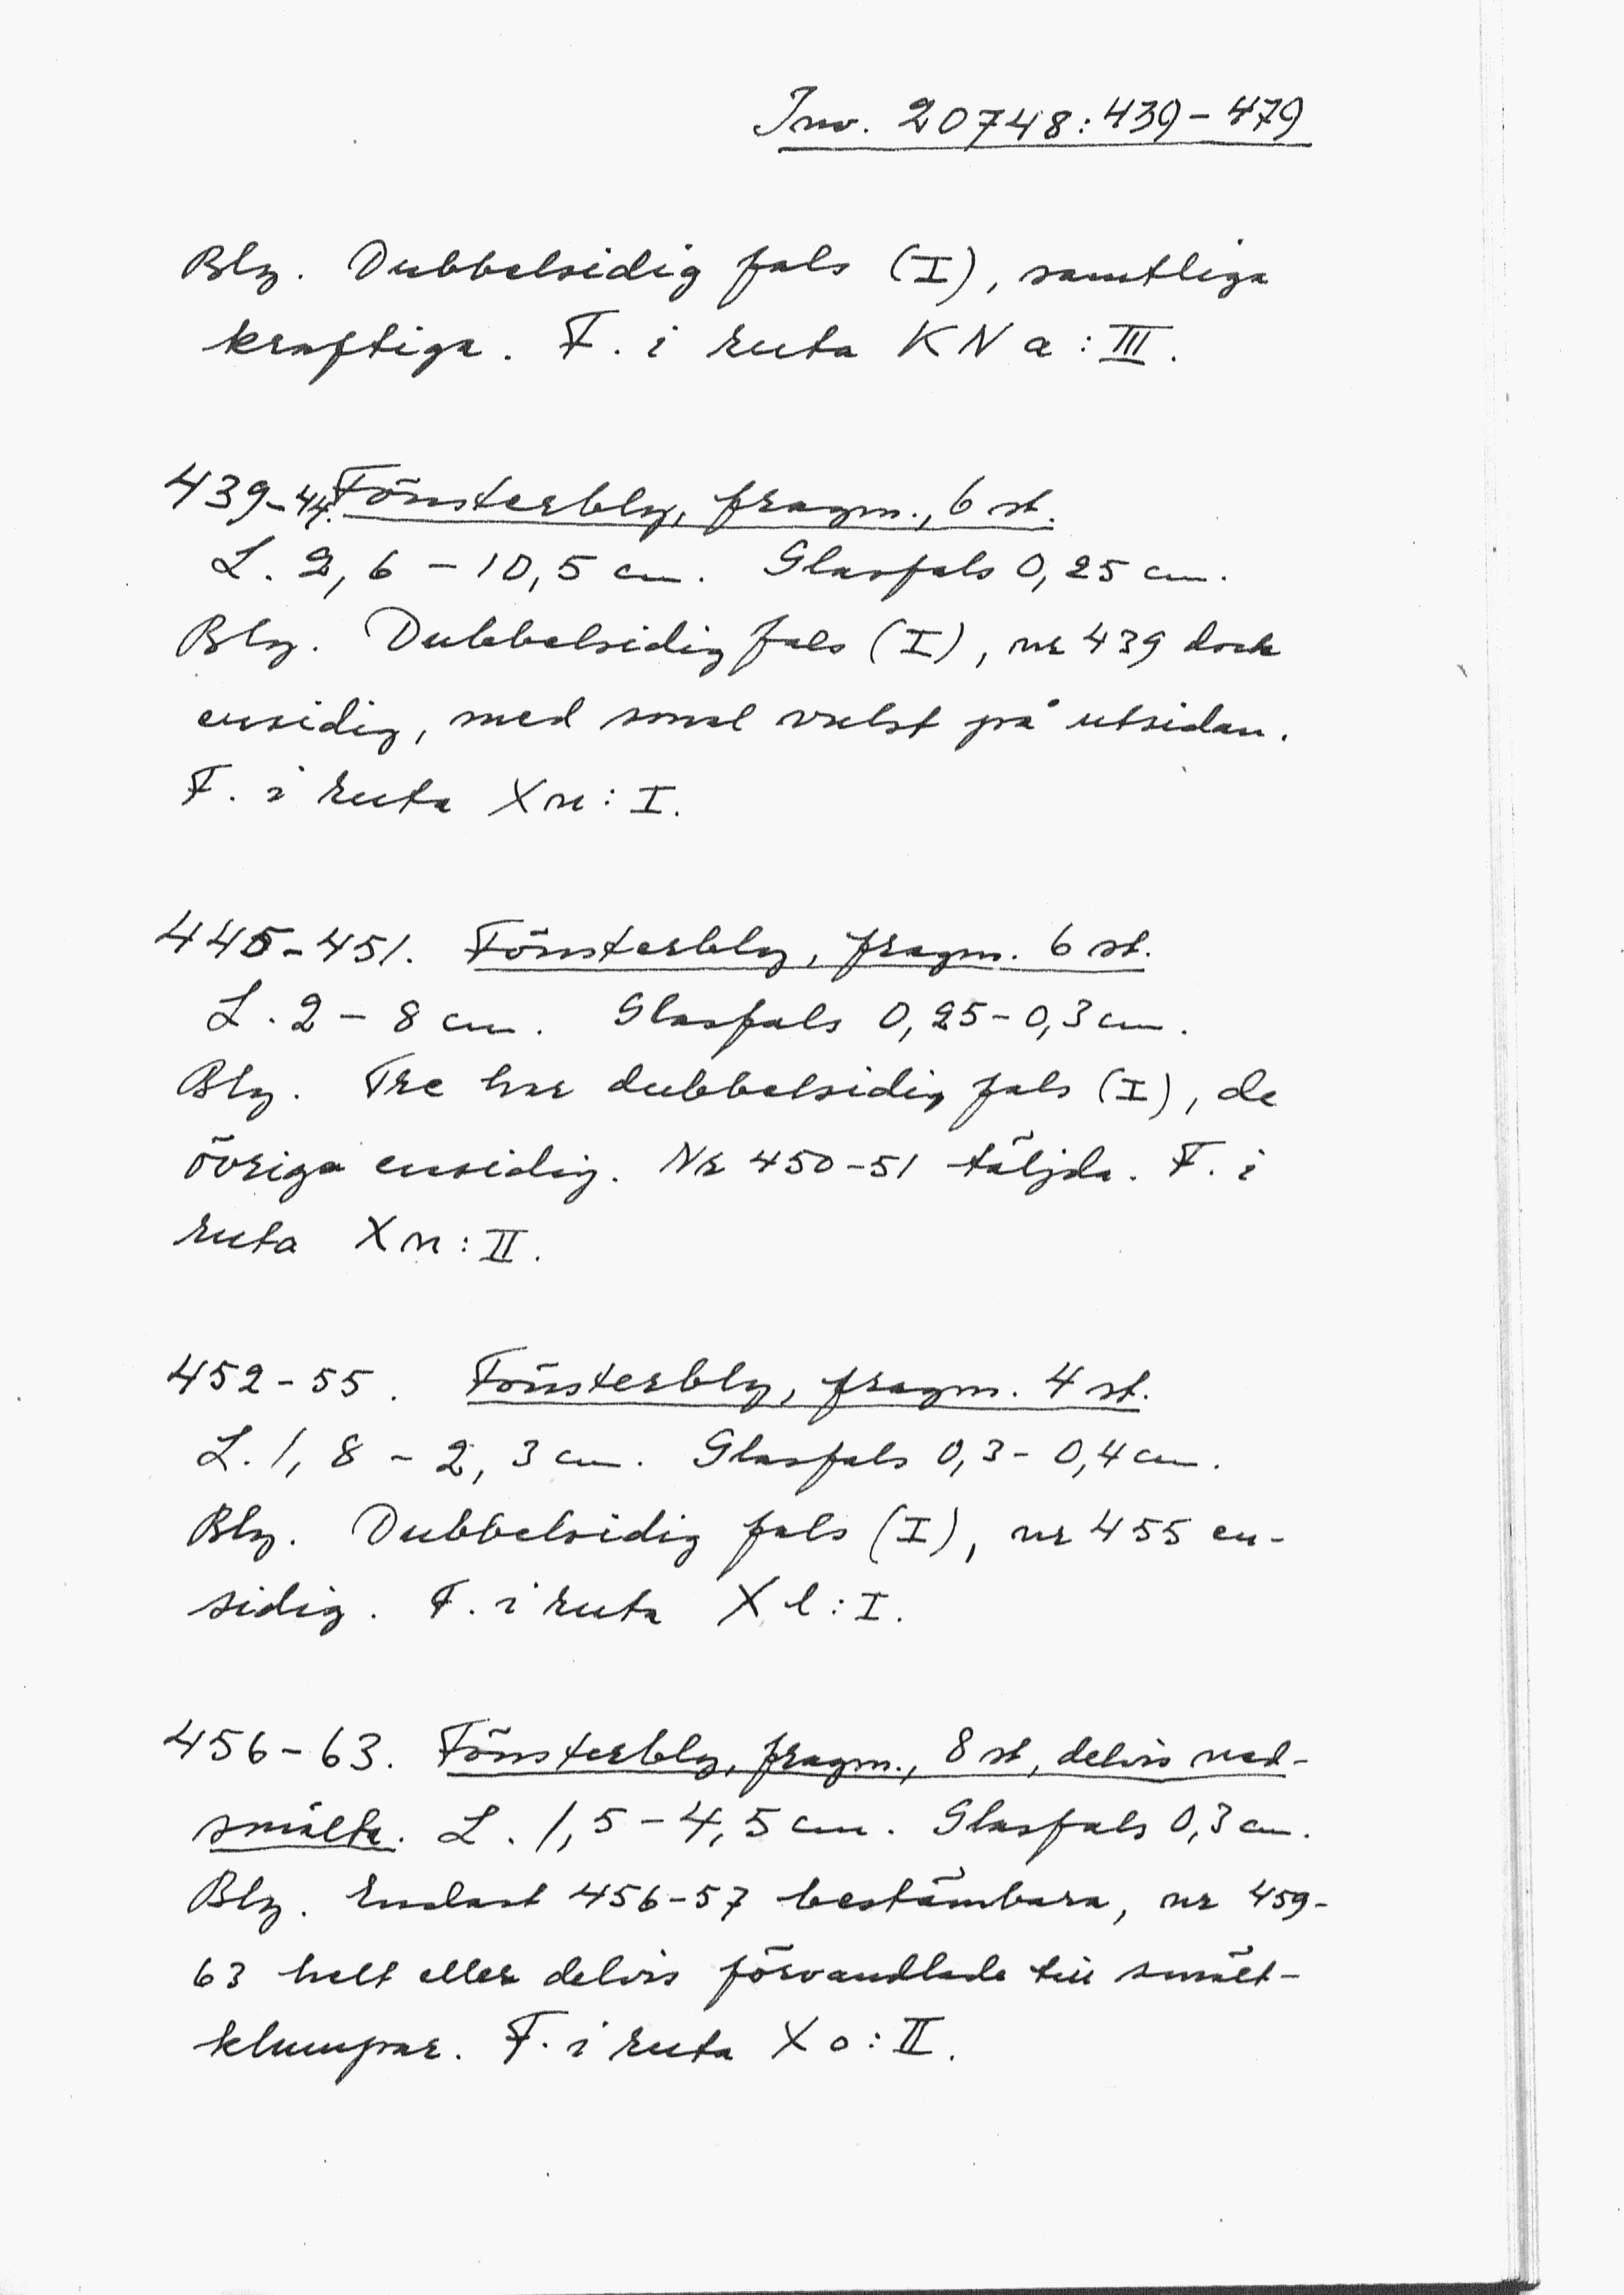 Inv. 20748:439-479
Bly. Dubbelsidig fals (I), samtliga
kraftiga. F. i ruta KN a:III.
439-44. Fönsterbly, fragm., 6 st.
L. 2,6 - 10,5 cm. Glasfals 0,25 cm.
Bly. Dubbelsidig fals (I), nr 439 dock
ensidig, med smal vulst på utsidan.
F. i ruta Xn:I.
445-451. Fönsterbly, fragm. 6 st.
L. 2 - 8 cm. Glasfals 0,25-0,3 cm.
Bly. Tre har dubbelsidig fals (I), de
övriga ensidig. Nr 450-51 täljda. F. i
ruta Xn:II.
452-55. Fönsterbly, fragm. 4 st.
L. 1,8 - 2,3 cm. Glasfals 0,3- 0,4 cm.
Bly. Dubbelsidig fals (I), nr 455 en-
sidig. F. i ruta Xl:I.
456-63. Fönsterbly, fragm., 8 st, delvis ned-
smälta. L. 1,5-4,5 cm. Glasfals 0,3 cm.
Bly. Endast 456-57 bestämbara, nr 459-
63 helt eller delvis förvandlade till smält-
klumpar. F. i ruta Xo:II.